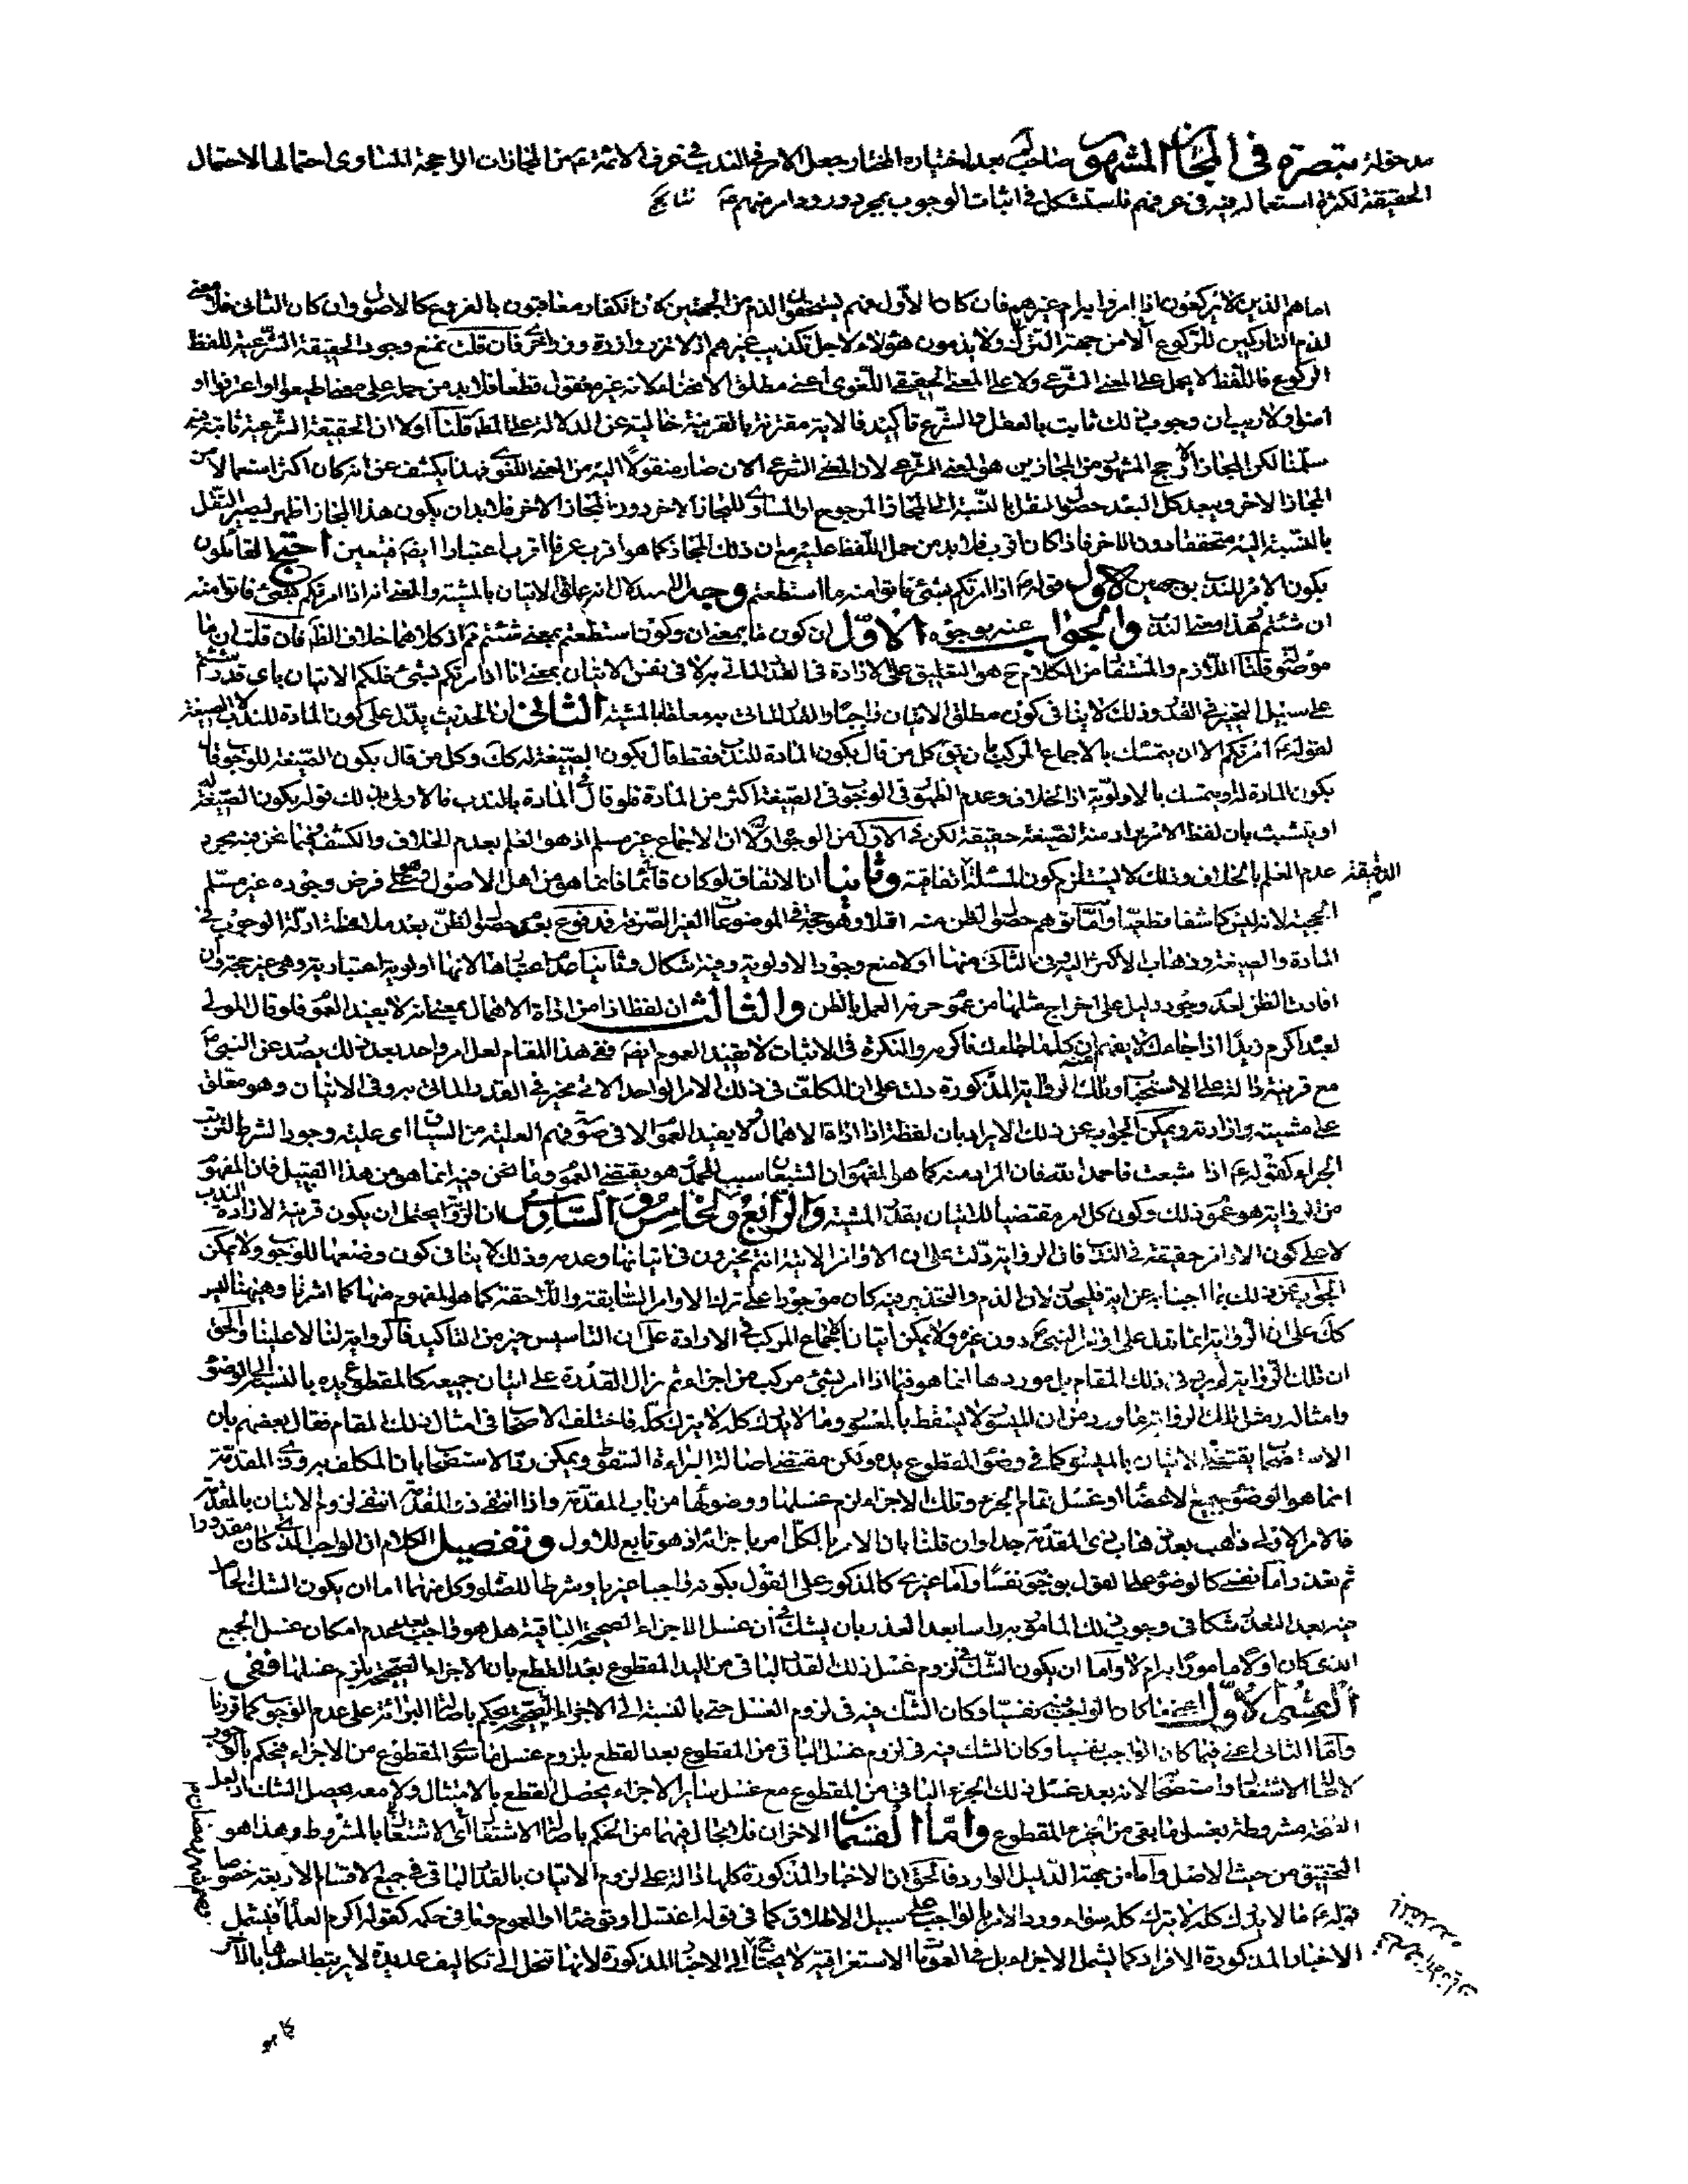 تبصرة في المجاز المشهور صاحب بعد اختياره المختار جعل الامر في الندب في عرف الائمة ع من المجازات الراجحة المساوي احتمالها لاحتمال
الحقيقة لكثرة استعماله فيه في عرفهم فاستشكل في اثبات الوجوب بمجرد ورود امر منهم ع نتايج
اما هم الذين لا يركعون اذا امروا به ام غيرهم فان كان الاول فهم يستحقون الذم من الجهتين كان الكفار معاقبون بالفروع كالاصول وان كان الثاني فلا معنى
لذم التاركين للركوع الا من جهة الترك ولا يذمون هؤلاء لاجل تكذيب غيرهم اذ لا تزر وازرة وزر اخرى فان قلت نمنع وجود الحقيقة الشرعية للفظ
الركوع فاللفظ لا يحمل على المعنى الشرعي ولا على المعنى الحقيقي اللغوي اعني مطلق الانحناء لانه غير معقول قطعا فلا بد من حمله على معنى اطيعوا او اعترفوا او
اصلوا ولا ريب ان وجوب ذلك ثابت بالعقل والشرع تاكيد فالاية مقترنة بالقرينة خالية عن الدلالة على المط قلنا اولا ان الحقيقة الشرعية ثابتة
سلمنا لكن المجاز الارجح المشهور من المجازين هو المعنى الشرعي لان المعنى الشرعي الان صار منقولا اليه من المعنى اللغوي فهذا يكشف عن انه كان اكثر استعمالا من
المجاز الاخر ويبعد كل البعد حصول النقل بالنسبة الى المجاز المرجوح او المساوي للمجاز الاخر دون المجاز الاخر فلا بد ان يكون هذا المجاز اظهر ليصير النقل
بالنسبة اليه متحققا دون الاخر فاذا كان اقرب فلا بد من حمل اللفظ عليه مع ان ذلك المجاز كما هو اقرب عرفا اقرب اعتبارا ايضا فيتعين احتج القائلون
بكون الامر للندب بوجهين الاول قوله ص اذا امرتكم بشيء فاتوا منه ما استطعتم وجه الاستدلال انه علق الاتيان بالمشية والمعنى انه اذا امرتكم بشيء فاتوا منه
ان شئتم هذا معنى الندب والجواب عنه بوجوه الاول ان كون ما بمعنى ان وكون استطعتم بمعنى شئتم كلاهما خلاف الظ فان قلت ان ما
موصولة قلنا اللازم والمستفاد من الكلام ح هو التعليق على الارادة في القدر الماتي به لا في نفس الاتيان بمعنى انا اذا امرتكم بشيء فلكم الاتيان باي قدر شئتم
على سبيل التخيير في القدر وذلك لا ينافي كون مطلق الاتيان واجبا والقدر الماتي به معلقا بالمشية الثاني ان الحديث يدل على كون المادة للندب لا الصيغة
لقوله ع امرتكم الا ان يتمسك بالاجماع المركب بان يق كل من قال بكون المادة للندب فقط قال بكون الصيغة له كك وكل من قال بكون الصيغة للوجوب قال
بكون المادة له او يتمسك بالاولوية اذ الخلاف وعدم الظهور في الوجوب في الصيغة اكثر من المادة فلو قال المادة بالندب فالاولى بذلك قوله بكون الصيغة له
او يتشبث بان لفظ الامر يراد منه الصيغة حقيقة لكن في الاول من الوجوه اولا ان الاجماع غير مسلم اذ هو العلم بعدم الخلاف والكشف فيما نحن فيه مجرد
عدم العلم بالخلاف وذلك لا يستلزم كون المسئلة اتفاقية وثانيا ان الاتفاق لو كان قائما فانما هو من اهل الاصول وهو على فرض وجوده غير مسلم
الحجية لانه ليس كاشفا قطعيا واما توهم حصول الظن منه اقلا وهو حجة في الموضوعات الغير الصرفة فمدفوع بعدم حصول الظن بعد ملاحظة ادلة الوجوب في
المادة والصيغة وذهاب الاكثر اليه وفي الثاني منهما اولا منع وجود الاولوية وفيه اشكال وثانيا عدم اعتبارها لانها اولوية اعتبارية وهي غير حجة وان
افادت الظن لعدم وجود دليل على اخراج مثلها من عموم حرمة العمل بالظن والثالث ان لفظ اذا من اداة الاهمال بمعنى انه لا يفيد العموم فلو قال المولى
لعبد اكرم زيدا اذا جاءك لا يفهم منه كلما جاءك فاكرمه والنكرة في الاثبات لا تفيد العموم ايضا ففي هذا المقام لعل امر واحد بعد ذلك يصدر عن النبي ص
مع قرينة دالة على الاستحباب وتلك الرواية المذكورة دلت على ان المكلف في ذلك الامر الواحد الاتي مخير في القدر الماتي به وفي الاتيان وهو معلق
على مشيته وارادته ويمكن الجواب عن ذلك الايراد بان لفظة اذا اداة الاهمال لا يفيد العموم الا في صورة فهم العلية من السياق اي علية وجود الشرط لترتب
الجزاء كقوله ع اذا شبعت فاحمد الله فان المراد منه كما هو المفهوم ان الشبع سبب للحمد هو يقتضي العموم وما نحن فيه انما هو من هذا القبيل فان المفهوم
من الرواية هو عموم ذلك وكون كل امر مقتضيا للاتيان بقدر المشية والرابع والخامس والسادس ان الرواية يحتمل ان يكون قرينة لارادة الندب
لا على كون الاوامر حقيقة في الندب فان الرواية دلت على ان الاوامر الاتية انتم مخيرون في اتيانها وعدمه وذلك لا ينافي كون وضعها للوجوب ولا يمكن
الجواب عن ذلك بما اجبنا به عن اية فليحذر لان الذم والتحذير فيه كان موجودا على ترك الاوامر السابقة واللاحقة كما هو المفهوم منها كما اشرنا وهيهنا ليس
كك على ان الرواية انما تدل على اوامر النبي ص دون غيره ولا يمكن اتيان الاجماع المركب في الارادة على ان التاسيس خير من التاكيد فالرواية لنا لا علينا والحق
ان تلك الرواية لم ترد في ذلك المقام بل موردها انما هو فيما اذا امر بشيء مركب من اجزاء ثم زال القدرة على اتيان جميعه كالمقطوع يده بالنسبة الى الوضوء
وامثاله ومثل تلك الرواية ما ورد من ان الميسور لا يسقط بالمعسور وما لا يدرك كله لا يترك كله فاختلف الاصحاب في امثال ذلك المقام فقال بعضهم بان
الاستصحاب يقتضي الاتيان بالميسور كما في وضوء المقطوع يده ولكن مقتضى اصالة البراءة السقوط ويمكن رد الاستصحاب بان المكلف به وذي المقدمة
انما هو الوضوء بجميع الاعضاء او غسل تمام الجزء وتلك الاجزاء لزم غسلها ووضوئها من باب المقدمة واذا انتفى ذي المقدمة انتفى لزوم الاتيان بالمقدمة
فالامر الاولى ذاهب بعد ذهاب ذي المقدمة جدا وان قلنا بان الامر بالكل امر باجزائه اذ هو تابع للاول وتفصيل الكلام ان الواجب الذي كان مقدورا
ثم تعذر اما نفسي كالوضوء على القول بوجوبه نفسا واما غيري كالمذكور على القول بكونه واجبا غيريا وشرطا للصلوة وكل منهما اما ان يكون الشك الحاصل
فيه بعد التعذر شكا في وجوب ذلك المامور به راسا بعد العذر بان يشك في ان غسل الاجزاء الصحيحة الباقية هل هو واجب بعد عدم امكان غسل الجميع
الذي كان اولا مامورا به ام لا واما ان يكون الشك في لزوم غسل ذلك القدر الباقي من اليد المقطوع بعد القطع بان الاجزاء الصحيحة يلزم غسلها ففي
القسم الاول اعني ما كان الواجب نفسيا وكان الشك فيه في لزوم الغسل حتى بالنسبة الى الاجزاء الصحيحة يحكم باصالة البرائة على عدم الوجوب كما قررنا
واما الثاني اعني فيما كان الواجب نفسيا وكان الشك فيه في لزوم غسل الباقي من المقطوع بعد القطع بلزوم غسل ما سوى المقطوع من الاجزاء فيحكم بالوجوب
لاصالة الاشتغال واستصحابه لانه بعد غسل ذلك الجزء الباقي من المقطوع مع غسل ساير الاجزاء يحصل القطع بالامتثال ولا معه يحصل الشك اذ لعل
الصحة مشروطة بغسل ما بقي من الجزء المقطوع واما القسمان الاخران فلا مجال فيهما من الحكم باصالة الاشتغال اي الاشتغال بالمشروط وهذا هو
التحقيق من حيث الاصل واما من جهة الدليل الوارد فالحق ان الاخبار المذكورة كلها دالة على لزوم الاتيان بالقدر الباقي في جميع الاقسام الاربعة خصوصا
قوله ع ما لا يدرك كله لا يترك كله سواء ورد الامر بالواجب على سبيل الاطلاق كما في قوله اغتسل او توضا او العموم وما في حكمه كقوله اكرم العلماء فيشمل
الاخبار المذكورة الافراد كما يشمل الاجزاء بل في العمومات الاستغراقية لا يحتاج الى الاخبار المذكورة لانها تنحل الى تكاليف عديدة لا يرتبط احدها بالاخر